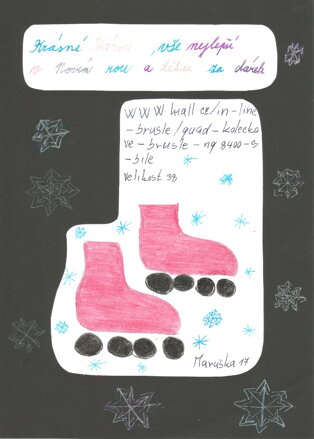 Krásné Vánoce, vše nejlepší
v Novém roce a těkuji za dárek
WWW mall cz/in-line
-brusle/quad-kolečko
ve-brusle-ng 8400-s
-bile
velikost 38
Maruška 17